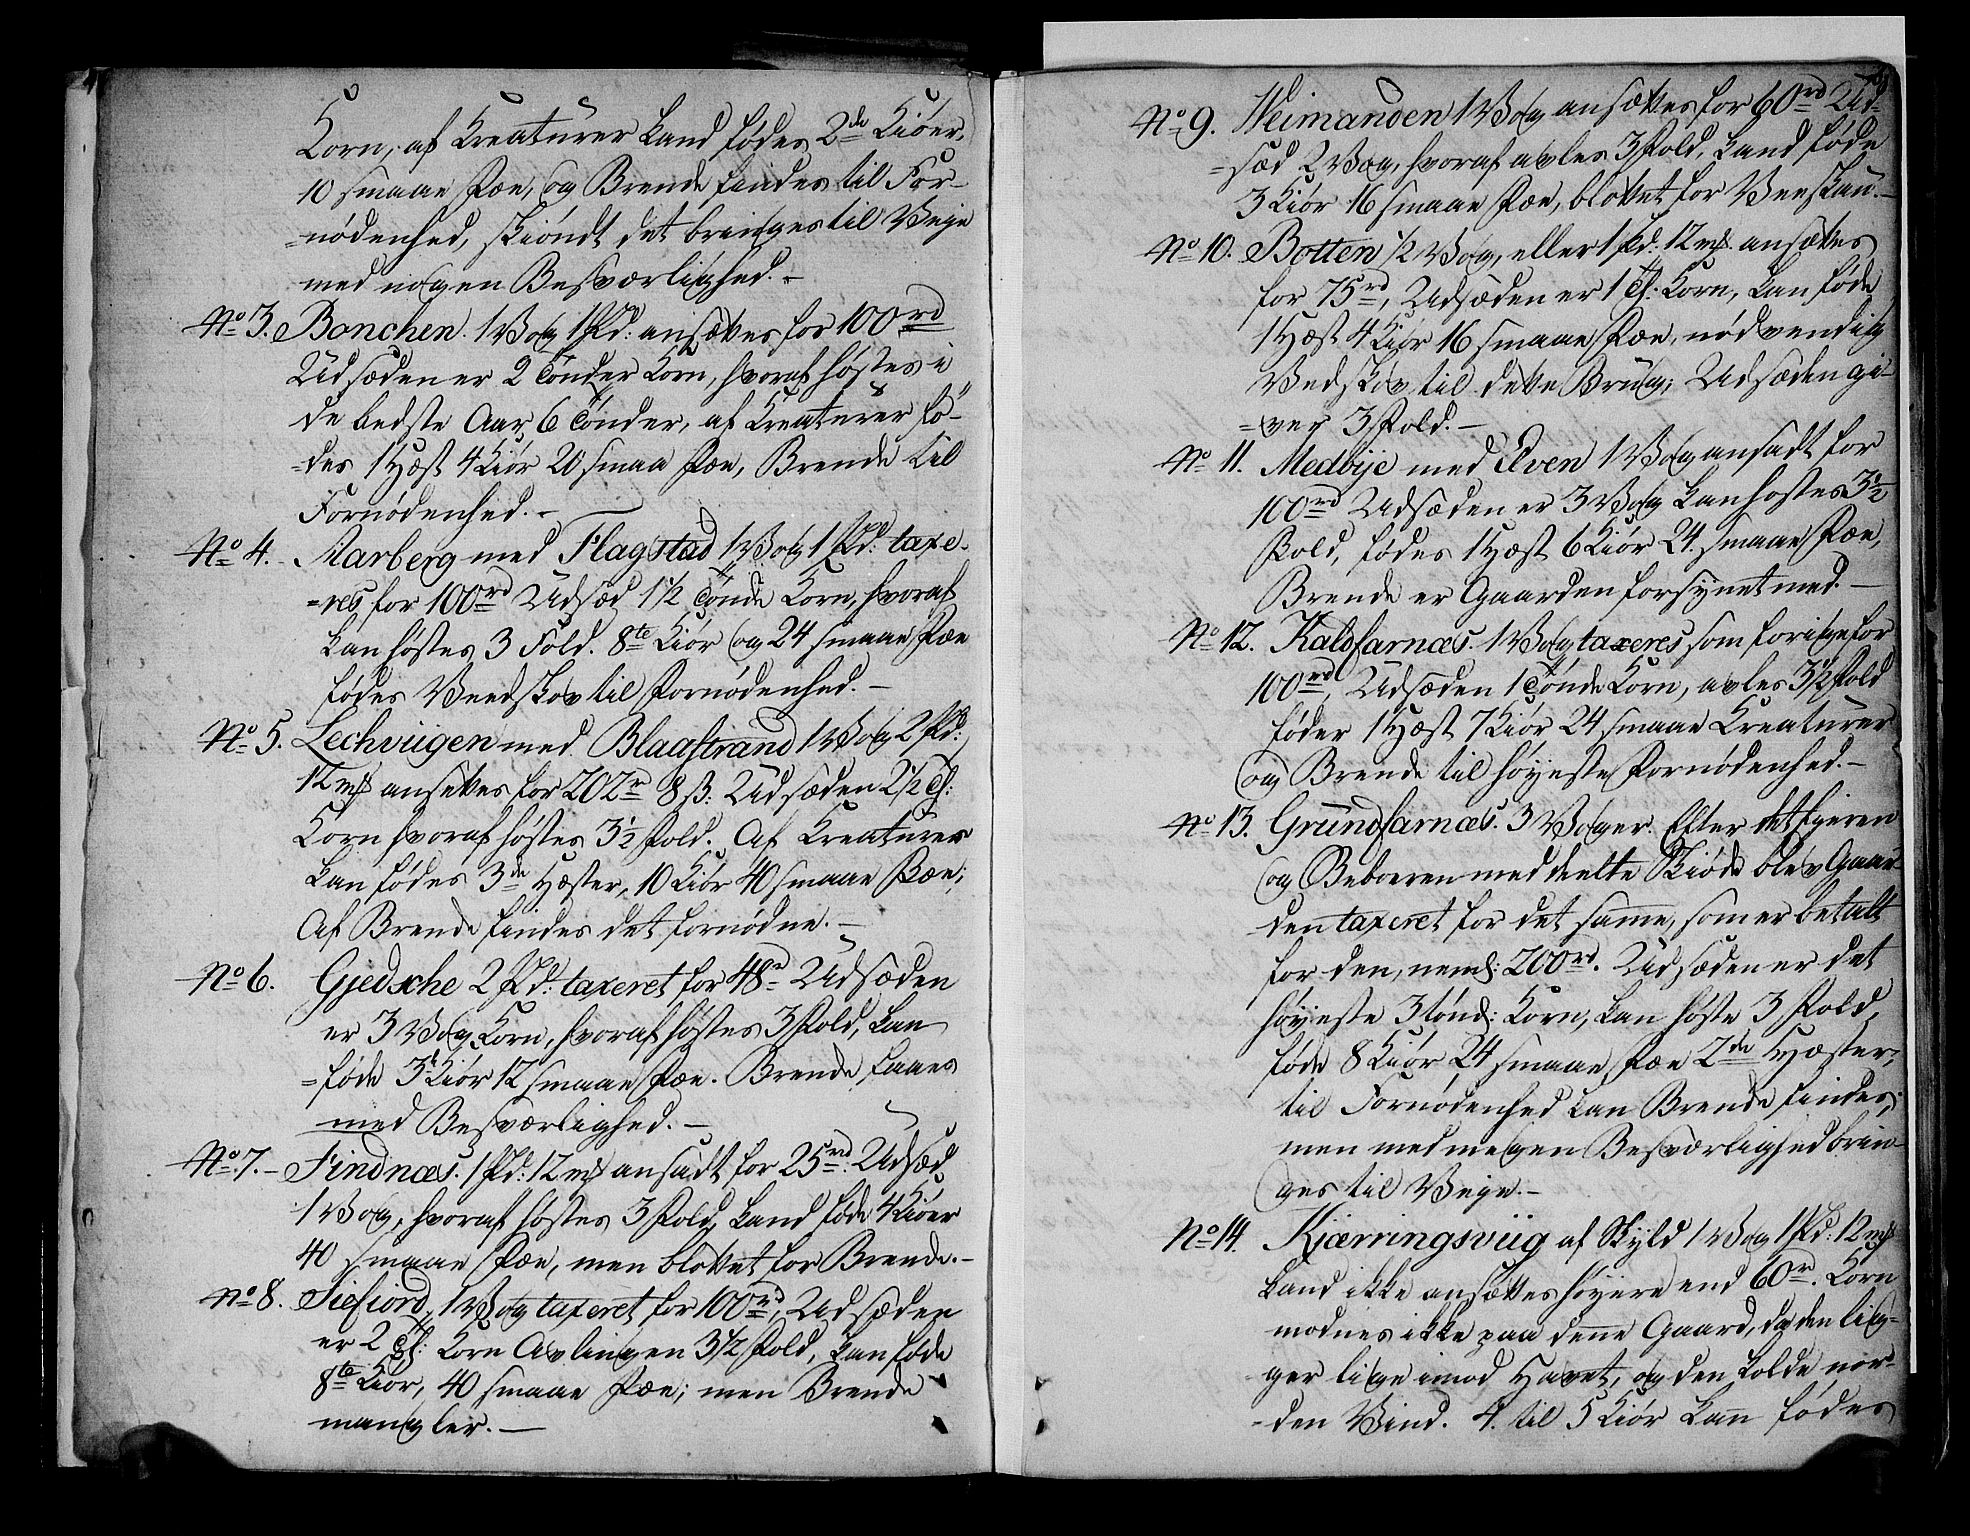 Korn, af Kreaturer kand fødes 2de Kiöer,
10 smaae Fæe, og Brende findes til For-
=nödenhed, skiöndt det bringes til Veije
med nogen Besværlighed. –
No 3. Bonchen. 1 Vog 1 Pd: ansættes for 100 rd
Udsæden er 2 Tönder Korn, hvoraf höstes i
de bedste Aar 6 Tönder, af Kreaturer fö-
=des 1 Hæst 4 Kiör 20 smaa Fæe, Brende til
Fornödenhed. –
No 4. Marberg med Flagstad 1 Vog 1 Pd: taxe-
=res for 100 rd Udsæd 1 1/2 Tönde Korn, hvoraf
kan höstes 3 Fold. 8te Kiör og 24 smaae Fæe
födes Veedskov til Fornödenhed. –
No 5. Lechviigen med Blaafstrand 1 Vog 2 Pd:
12 mk ansettes for 202 r 8 ß: Udsæden 2 1/2 Td:
Korn hvoraf höstes 3 1/2 Fold. Af Kreaturer
kan födes 3de Hæster, 10 Kiör 40 smaae Fæe;
Af Brende findes det fornödne. –
No 6. Gjedsche 2 Pd: taxeret for 48 rd Udsæden
er 3 Vog Korn, hvoraf höstes 3 Fold, kan
=föde 3 Kiör 12 smaae Fæe. Brende faaes
med Besværlighed. –
No 7. – Findnæs. 1 Pd: 12 mk ansadt for 25 rd: Udsæd
1 Vog, hvoraf höstes 3 Fold, kand föde 4 Kiöer
40 smaae Fæe, men blottet for Brende. –
No 8. Siefiord, 1 Vog taxeret for 100 rd, Udsæden
er 2 Td: Korn Avlingen 3 1/2 Fold, kan föde
8te Kiör, 40 smaae Fæe; men Brende
mangler. –
No 9. Weimanden 1 Vog ansættes for 60 rd Ud-
=sæd 2 Vog, hvoraf avles 3 Fold, kand föde
3 Kiör 16 smaae Fæe, blottet for Veeskau. –
No 10. Botten 1/2 Vog, eller 1 Pd: 12 mk. ansættes
for 75 rd, Udsæden er 1 Td: Korn, kan föde
1 Hæst 4 Kiör 16 smaae Fæe, nödvendig
Vedskov til dette Brug; Udsæden gi-
=ver 3 Fold. –
No 11. Medbije med Elven 1 Vog ansadt for
100 rd Udsæden er 3 Vog kan höstes 3 1/2
Fold, födes 1 Hæst 6 Kiör 24. smaae Fæe,
Brende er Gaarden forsynet med. –
No 12. Kaldfarnæs. 1 Vog taxeres som forige for
100 rd, Udsæden 1 Tönde Korn, avles 3 1/2 Fold
föder 1 Hæst 7 Kiör 24 smaae Kreaturer
og Brende til höyeste Fornödenhed. –
No 13. Grundfarnæs. 3 Voger. Efter det Eijeren
og Beboeren meddeelte Skiöde blev Gaar-
den taxeret for det samme, som er betalt
for den, neml: 200 rd. Udsæden er det
höyeste 3 tönd: Korn, kan höste 3 Fold,
föde 8 Kiör 24 smaae Fæe 2de Hæster;
til Fornödenhed kan Brende findes;
men med megen Besværlighed brin-
ges til Veije. –
No 14. Kjærringsviig af Skyld 1 Vog 1 Pd: 12 mk
kand ikke ansættes höyere end 60 rd. Korn
modnes ikke paa denne Gaard, da den lig-
ger lige imod Havet, og den kolde nor-
den Vind. 4. til 5 Kiör kan födes